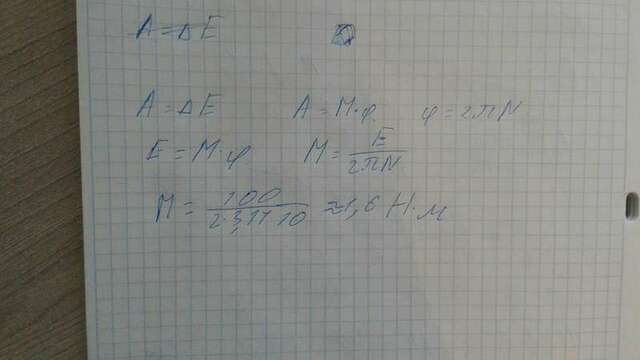 A = ΔE
A = ΔE A = M·φ. φ = 2πN
E = M·φ M = E/2πN
M = 100/2·3,14·10 ≈ 1,6 Н·м